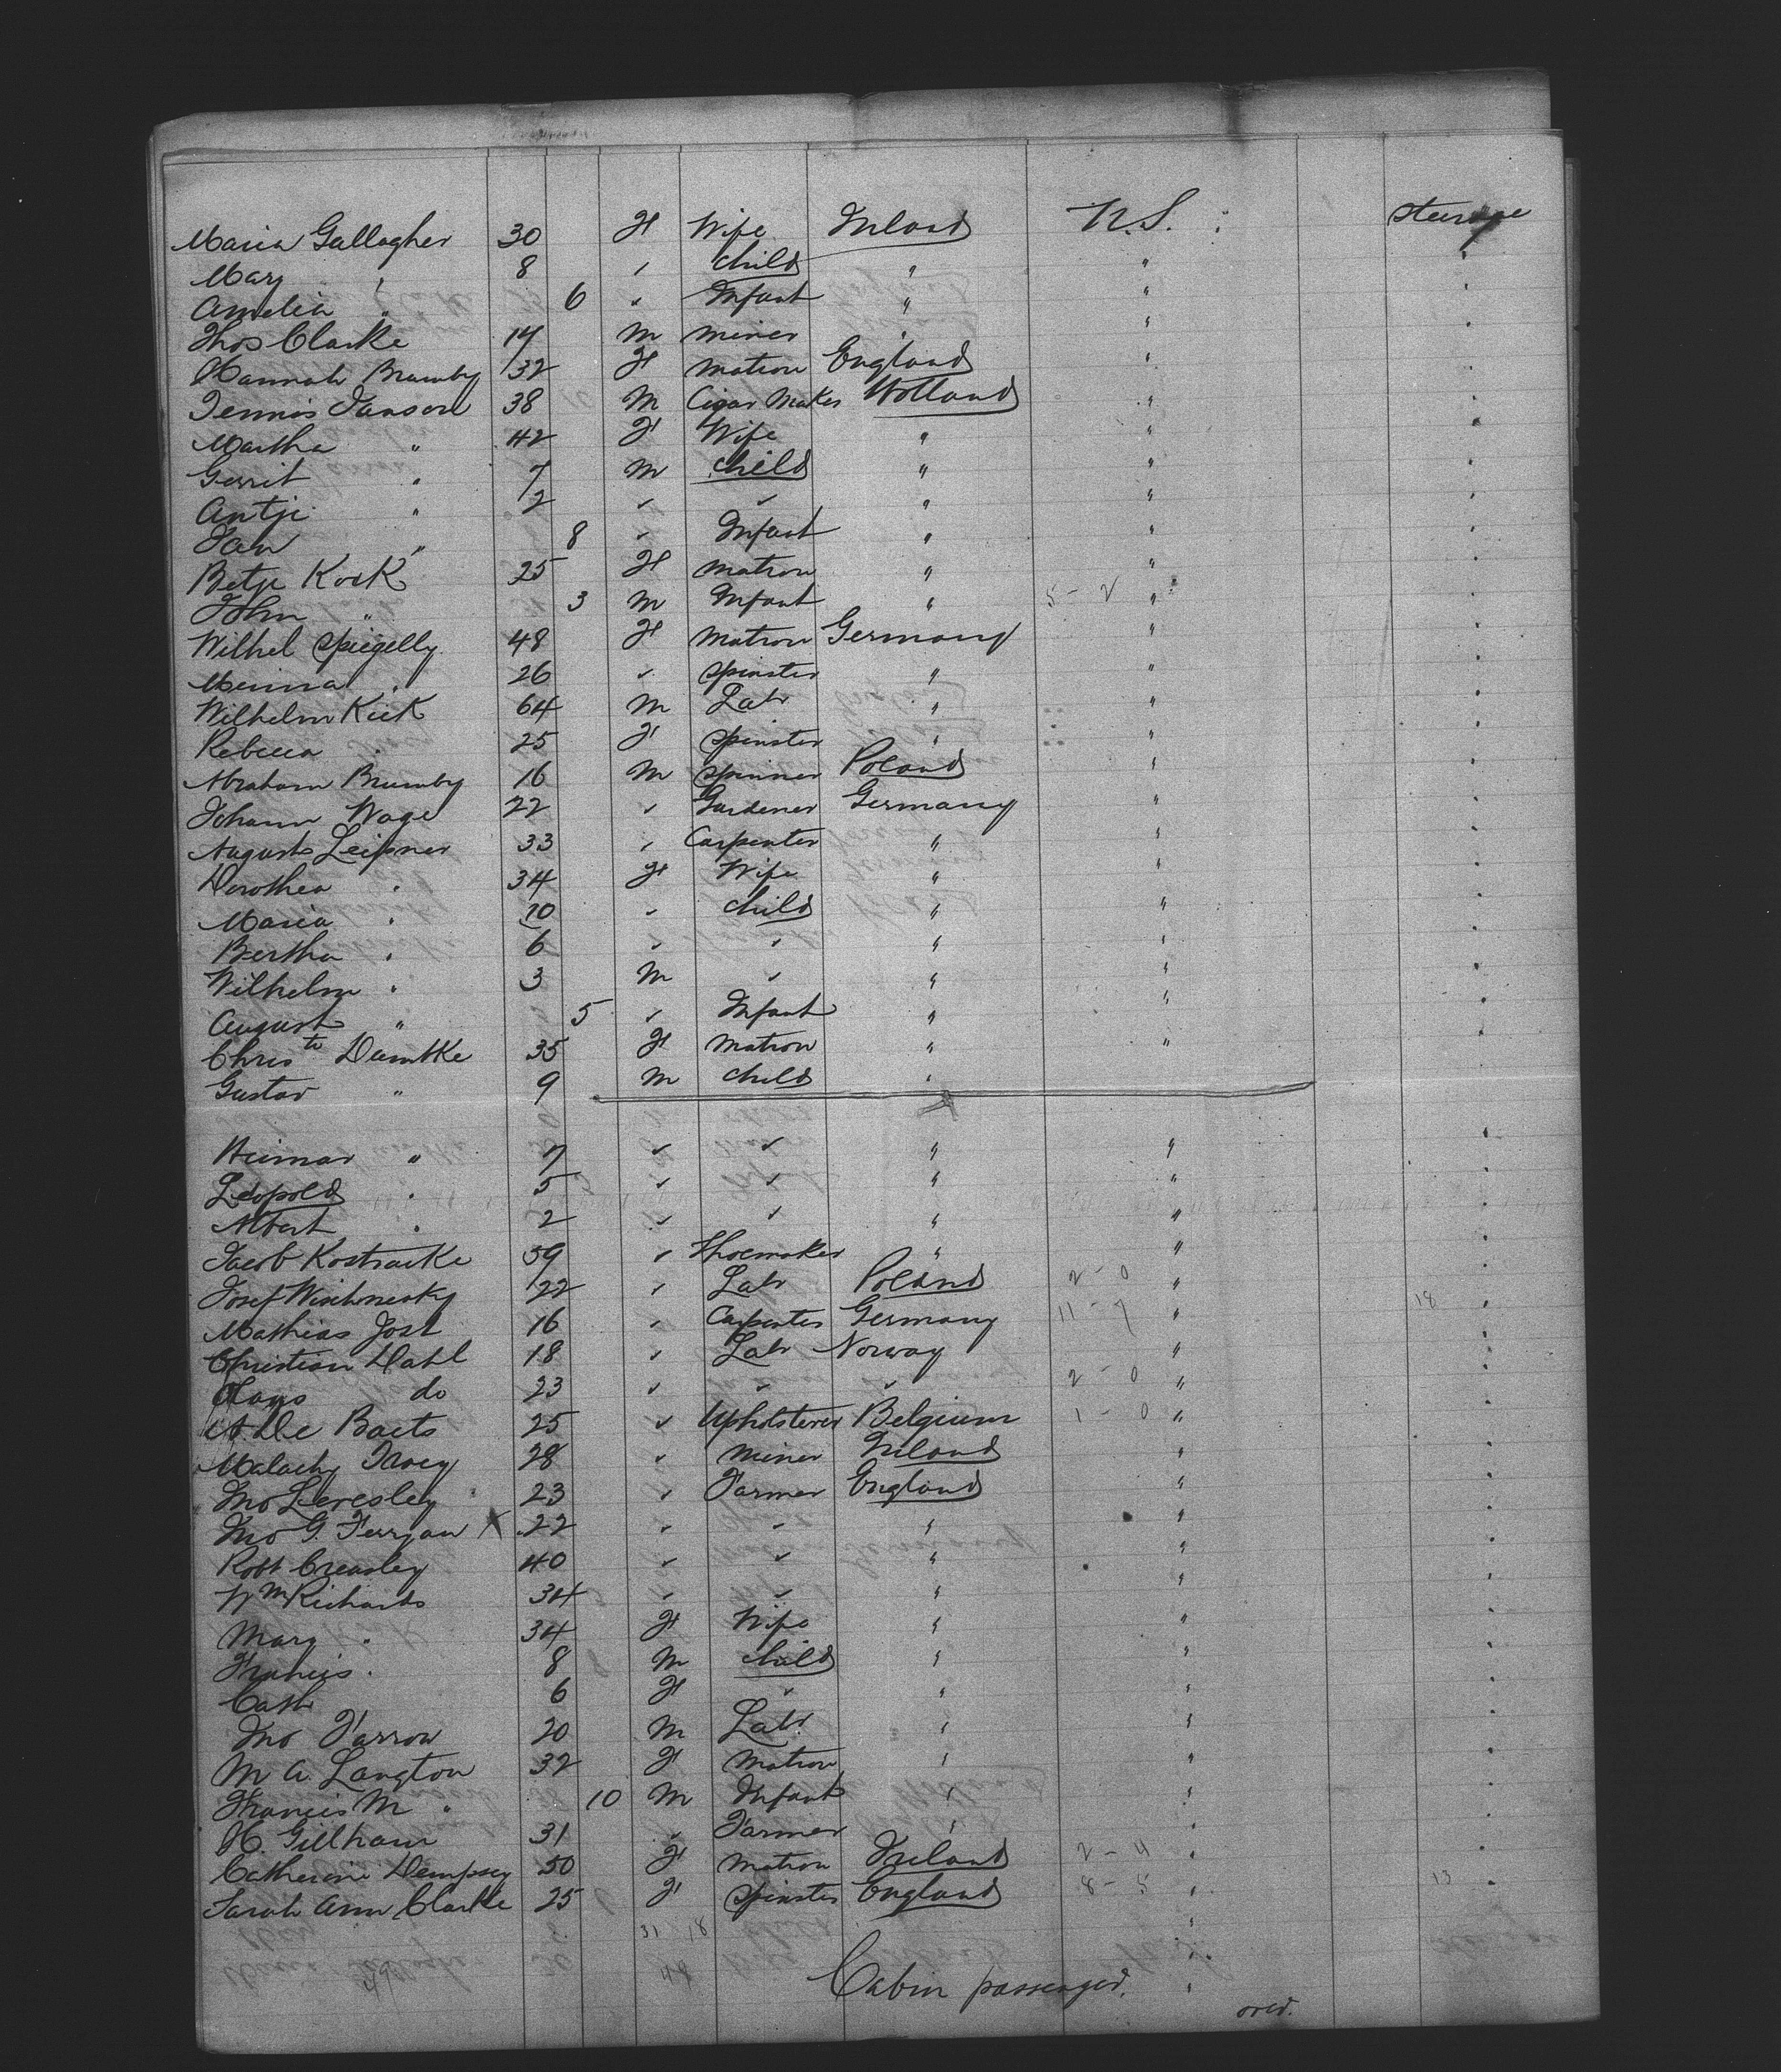 Maria Gallagher 30 F Wife Ireland U.S. Steerage
Mary " 8 " Child " " "
Amelia " 6 " Infant " " "
Thos Clarke 14 M Miner " " "
Hannah Brumby 32 F Matron England " "
Dennis Janson 38 M Cigar Maker Holland " "
Martha " 42 F Wife " " "
Gerrit " 7 M Child " " "
Antje " 2 " " " " "
Jan " 8 " Infant " " "
Betje Kock 25 F Matron " " "
John " 3 M Infant " 5 - 2 " "
Wilhel Spiegelly 48 F Matron Germany " "
Minna " 26 " Spinster " " "
Wilhelm Kick 64 M Labr " " "
Rebecca " 25 F Spinster " " "
Abraham Brumby 16 M Spinner Poland " "
Johann Wage 22 " Gardener Germany " "
August Leipner 33 " Carpenter " " "
Dorothea " 34 F Wife " " "
Maria " 10 " Child " " "
Bertha " 6 " " " " "
Wilhelm " 3 M " " " "
August " 5 " Infant " " "
Christe Damtke 35 F Matron " " "
Gustav " 9 M Child "
" 7 " " " " "
Leopold " 5 " " " " "
Albert " 2 " " " " "
Jacob Kostracke 39 " Shoemaker " " "
Josef Wischnesky 22 " Labr Poland 2 - 0 " "
Mathias Jost 16 " Carpenter Germany 11 - 7 " 18 "
Christian Dahl 18 " Labr Norway " "
do 23 " " " 2 - 0 " "
A. De Baets 25 " Upholsterer Belgium 1 - 0 " "
Malachy 28 " Miner Ireland " "
Jno Leresley 23 " Farmer England " "
Jno G. Ferryan X 22 " " " " "
Robt Creasley 40 " " " " "
Wm Richards 34 " " " " "
Mary " 34 F Wife " " "
Francis " 8 M Child " " "
Cath 6 F " " " "
Jno Farrow 20 M Labr. " " "
M A. Langton 32 F Matron " " "
Francis M " 10 M Infant " " "
H. Gillham 31 " Farmer " " "
Catherine Dempsey 50 F Matron Ireland 2 - 4 " "
Sarah Ann Clarke 25 F Spinster England 8 - 5 " 13 "
31 18
49 48 Cabin passenger.
over.